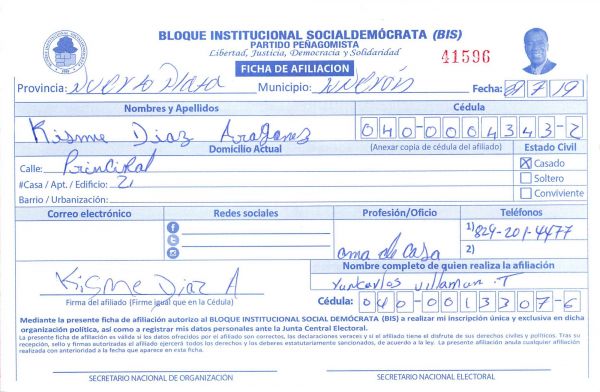 BLOQUE INSTITUCIONAL SOCIALDEMÓCRATA (BIS)
PARTIDO PEÑAGOMISTA
Libertad, Justicia, Democracia y Solidaridad
41596
FICHA DE AFILIACION
Provincia: Puerto Plata Municipio: Fecha: 7/19
Nombres y Apellidos Cédula
Kisme Diaz 040-0004343-2
Domicilio Actual (Anexar copia de cédula del afiliado) Estado Civil
Calle: Principal Casado
#Casa / Apt. / Edificio: 21 Soltero
Barrio / Urbanización: Conviviente
Correo electrónico Redes sociales Profesión/Oficio Teléfonos
1) 829-201-4477
ama de casa 2)
Nombre completo de quien realiza la afiliación
Kisme Diaz A Yuncarlos Villaman T
Firma del afiliado (Firme igual que en la Cédula) Cédula: 040-0013307-6
Mediante la presente ficha de afiliación autorizo al BLOQUE INSTITUCIONAL SOCIAL DEMÓCRATA (BIS) a realizar mi inscripción única y exclusiva en dicha
organización política, así como a registrar mis datos personales ante la Junta Central Electoral.
La presente ficha de afiliación es válida si los datos ofrecidos por el afiliado son correctos, las declaraciones veraces y si el afiliado tiene el disfrute de sus derechos civiles y políticos. Tras su
recepción, sello y firmas autorizadas el afiliado ejercerá todos los derechos y los deberes estatutariamente sancionados, de acuerdo a la ley. La presente afiliación anula cualquier afiliación
realizada con anterioridad a la fecha que aparece en esta ficha.
SECRETARIO NACIONAL DE ORGANIZACIÓN SECRETARIO NACIONAL ELECTORAL